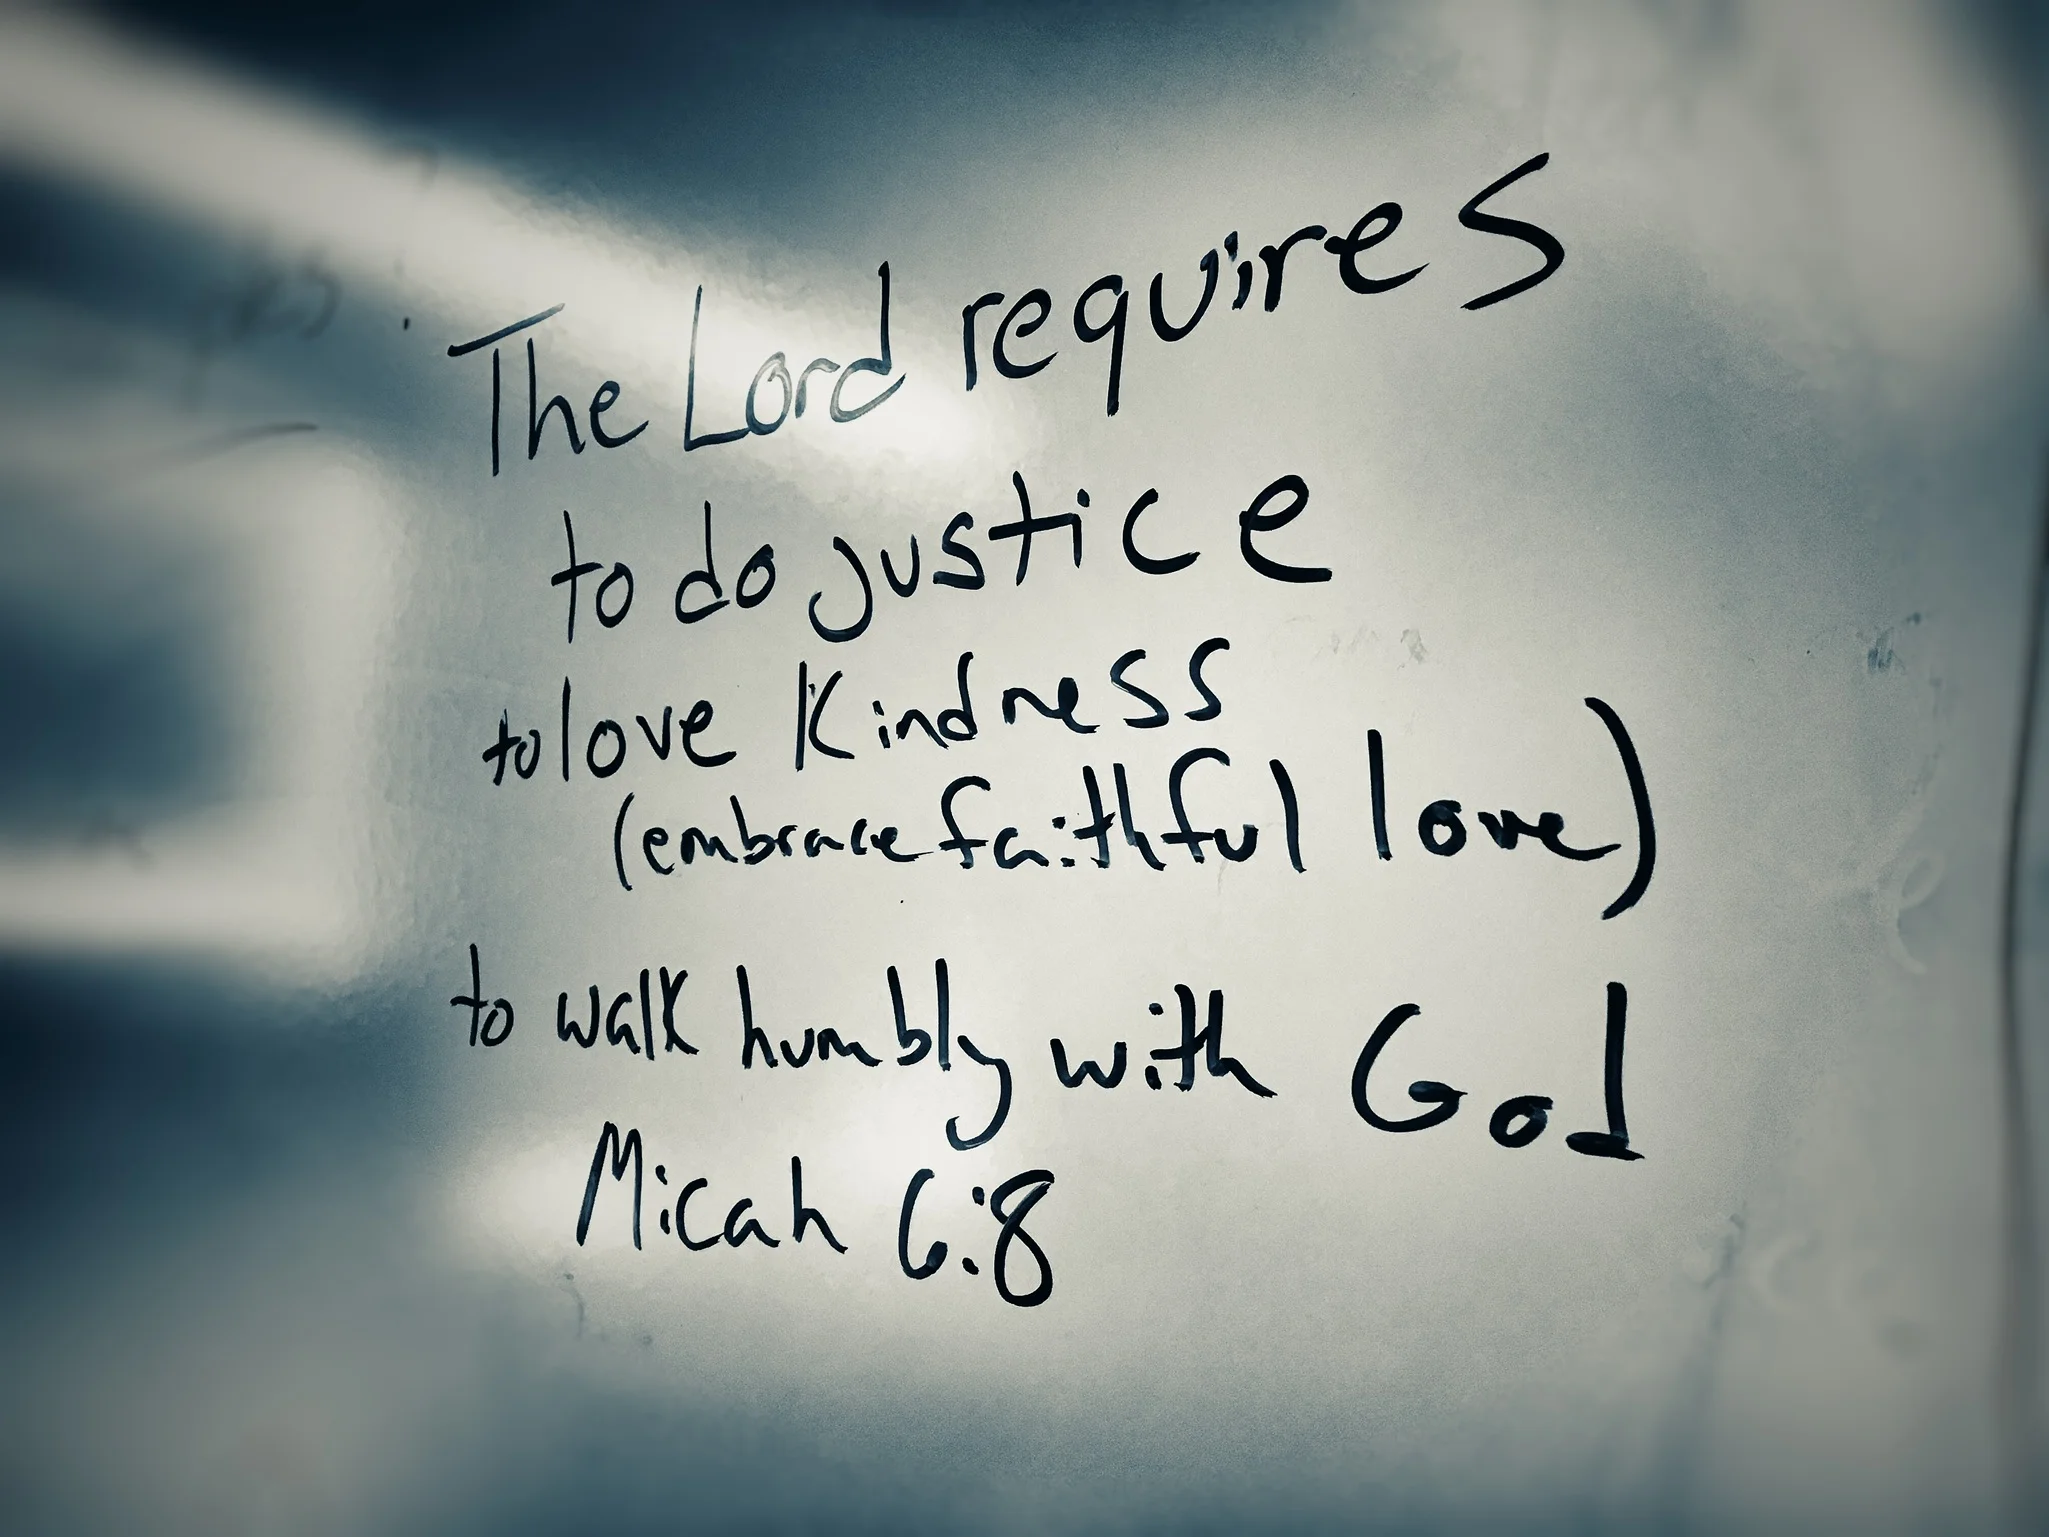 The Lord requires
to do justice
to love Kindness
(embrace faithful love)
to walk humbly with God
Micah 6:8